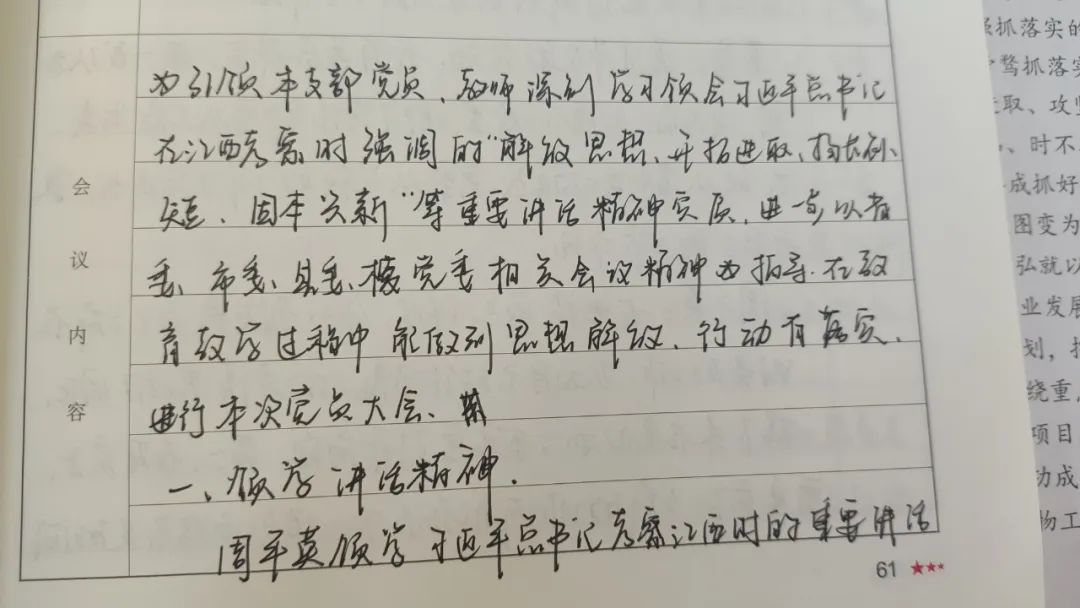 会议内容
为引领本支部党员、教师深刻学习领会习近平总书记
在江西考察时强调的"解放思想、开拓进取、扬长补
短、固本兴新"等重要讲话精神实质,进一步以省
委、市委、县委、校党委相关会议精神为指导.在教
育教学过程中能做到思想解放、行动有落实、
进行本次党员大会、
一、领学讲话精神.
周平英领学习近平总书记考察江西时的重要讲话
61
抓落实的
骛抓落实
取、攻坚
、时不
成抓好
图变为
弘就以
业发展
划,
绕重
项目
动成
物工